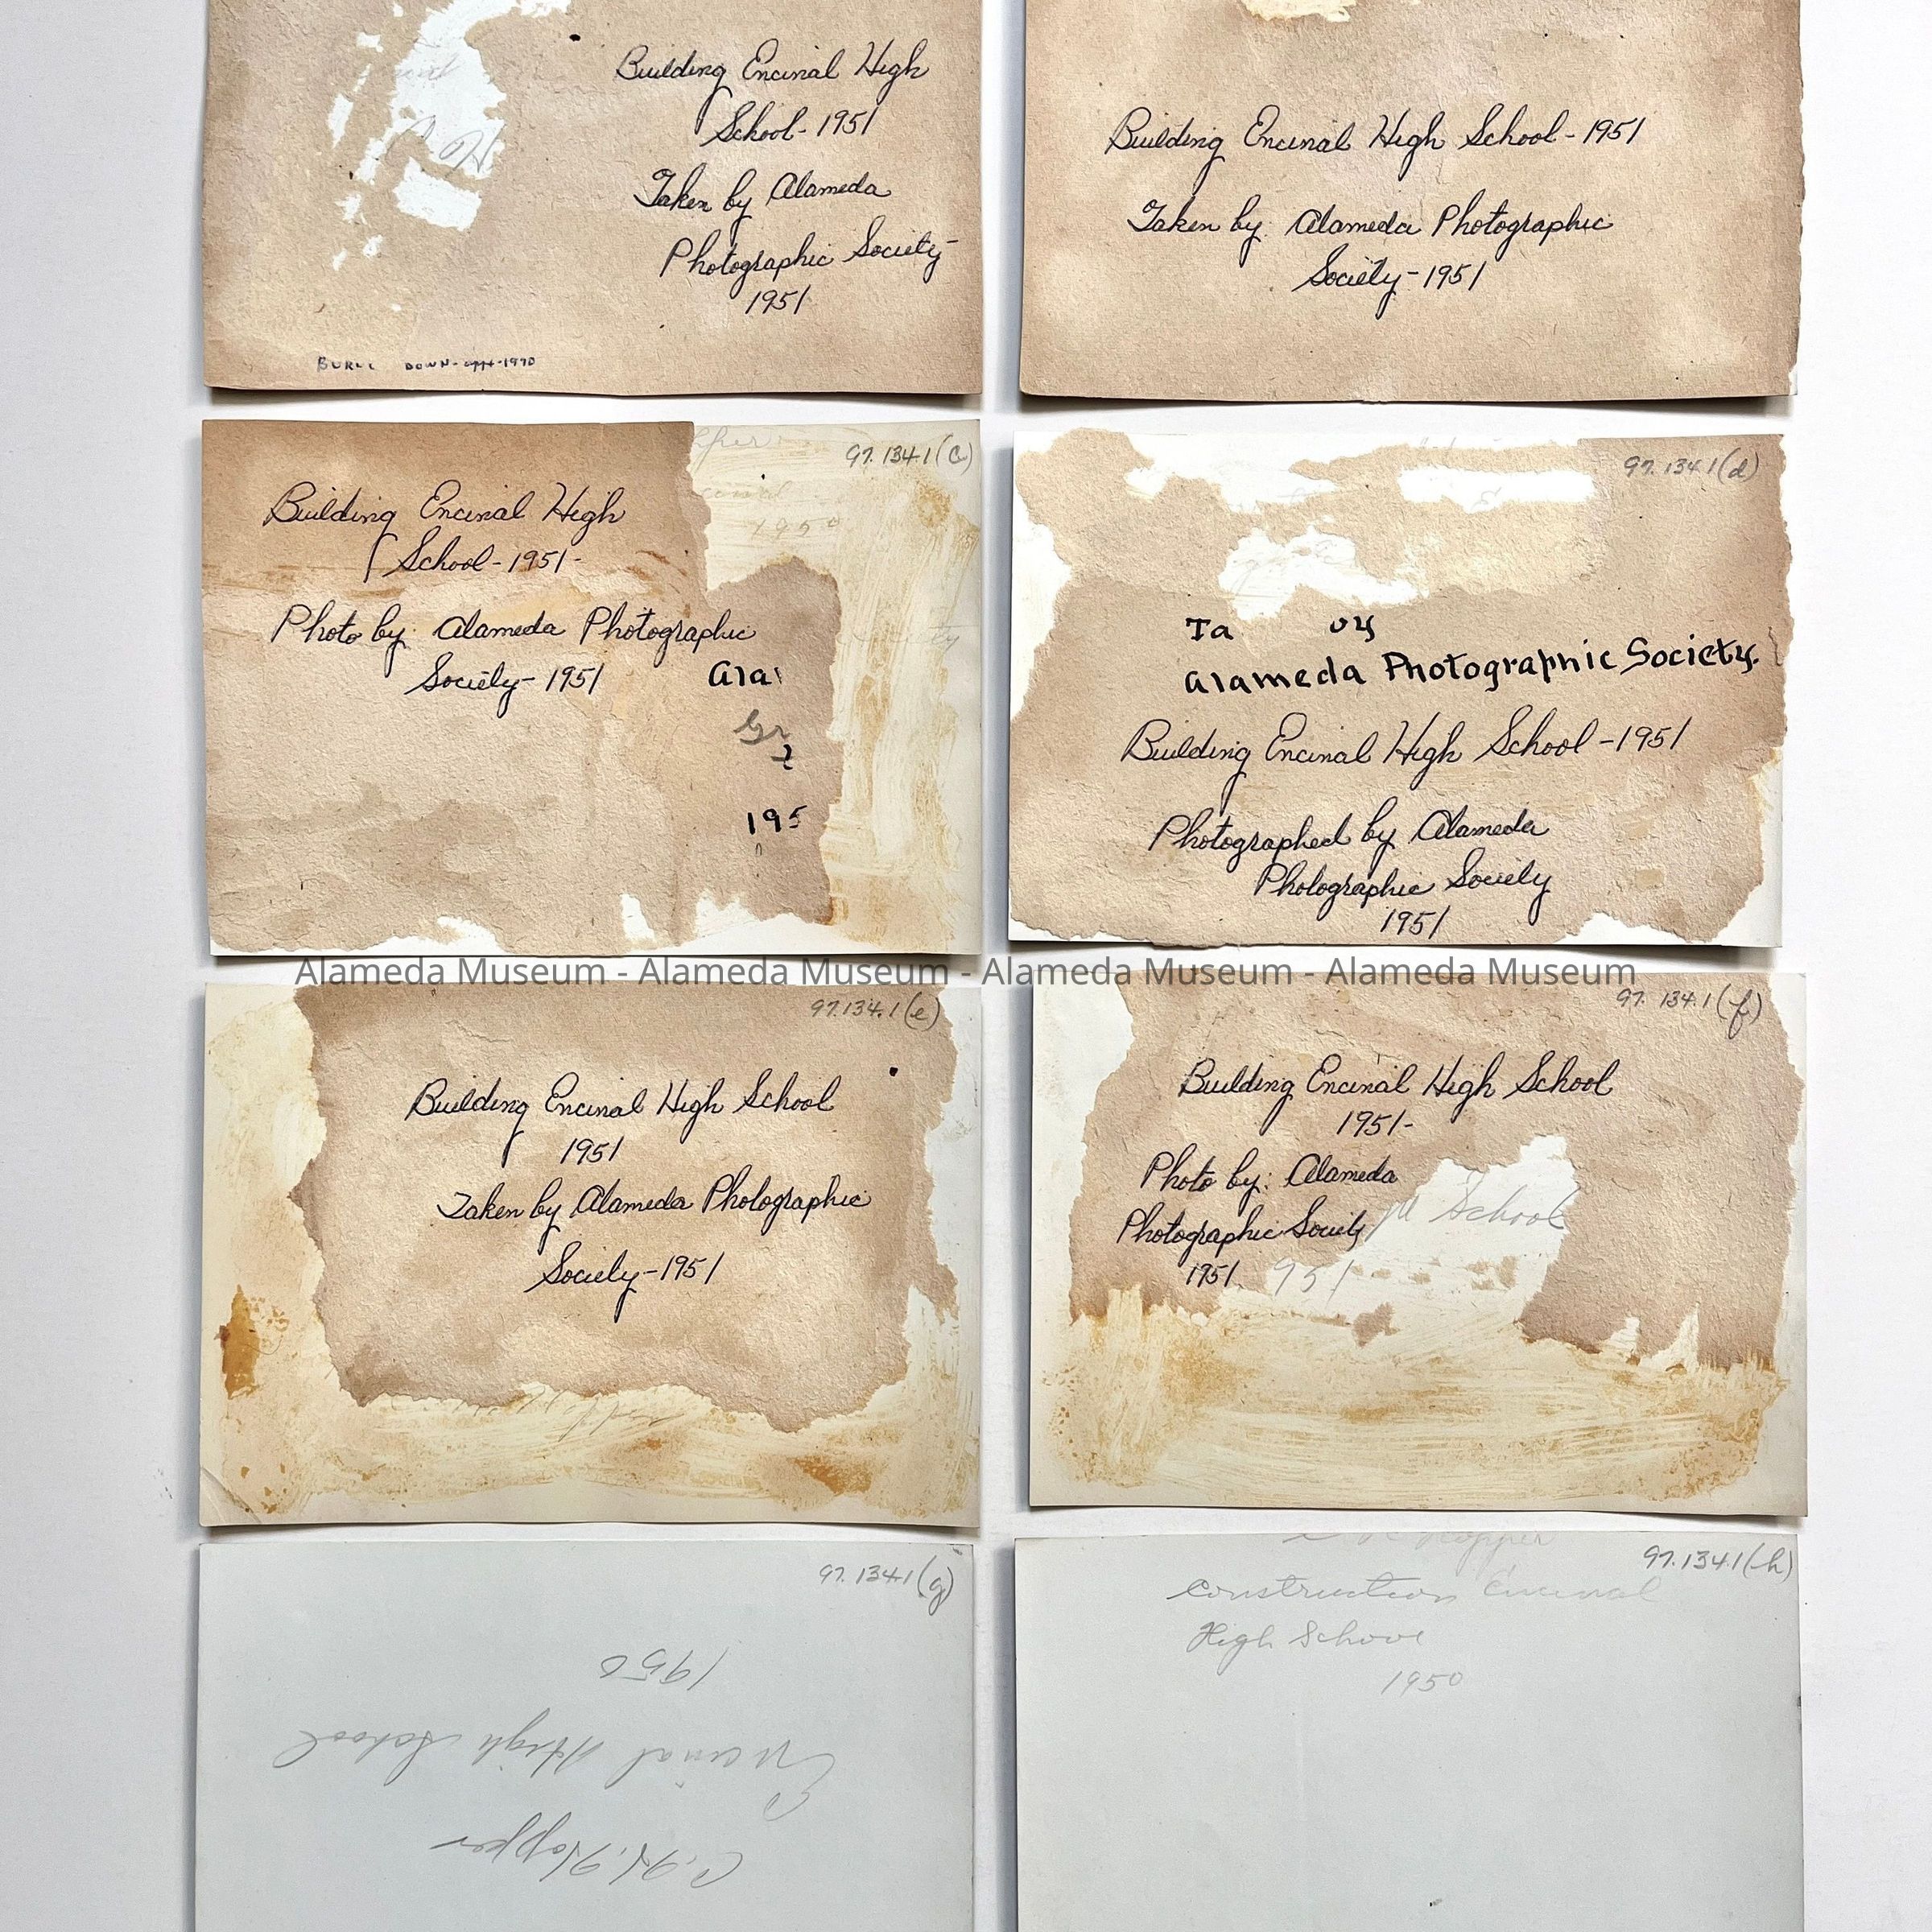 Building Encinal High
School - 1951
Taken by Alameda
Photographic Society -
1951
DOWN - 1990
Building Encinal High School - 1951
Taken by: Alameda Photographic
Society - 1951
97.134.1(c)
1950
Building Encinal High
School - 1951 -
Photo by: Alameda Photographic
Society - 1951
Ala
195
97.134.1(d)
Ta by
Alameda Photographic Society.
Building Encinal High School - 1951
Photographed by Alameda
Photographic Society
1951
Alameda Museum - Alameda Museum - Alameda Museum - Alameda Museum
97.134.1(e)
Building Encinal High School
1951
Taken by Alameda Photographic
Society - 1951
97.134.1(f)
Building Encinal High School
1951 -
Photo by: Alameda
Photographic Society
School
1951
951
97.134.1(g)
C. H. Hopper
Encinal High School
1950
97.134.1(h)
Hopper
Construction Encinal
High School
1950